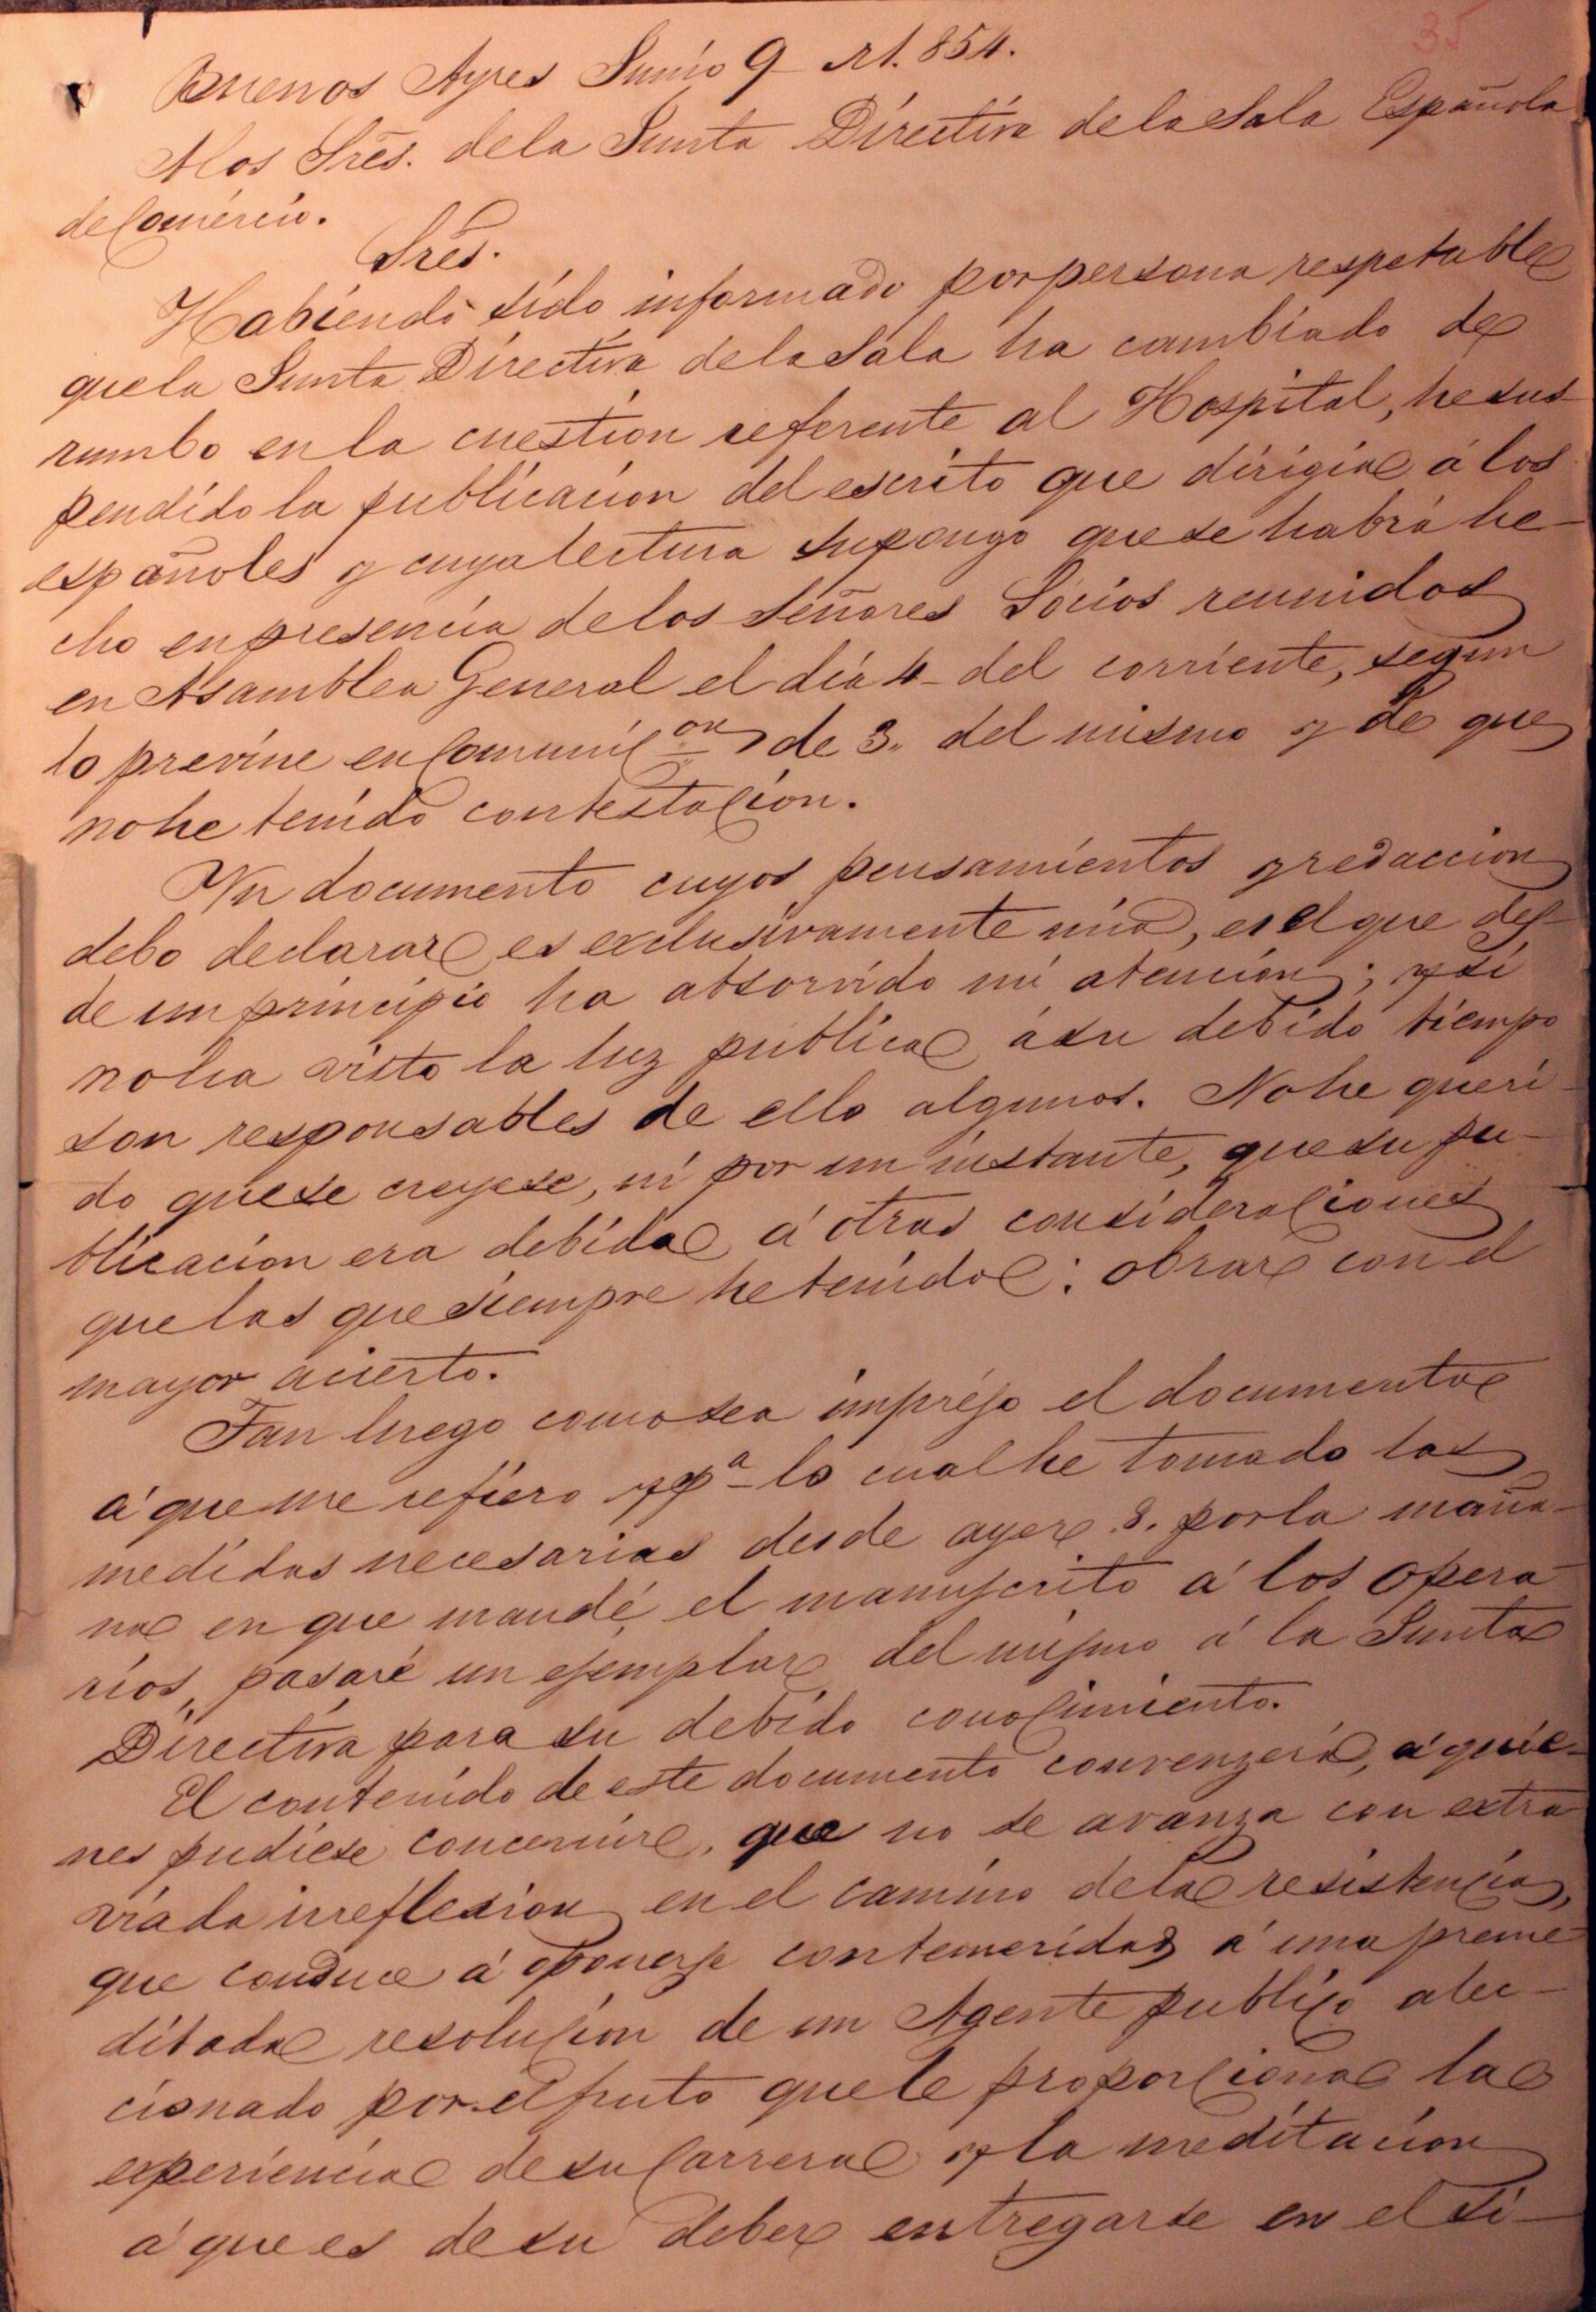 35
Buenos Ayres Junio 9 - de 1.854.
A los Sres. de la Junta Directiva de la Sala Española
de Comercio.
Sres.
Habiendo sido informado por persona respetable
que la Junta Directiva de la Sala ha cambiado de
rumbo en la cuestion referente al Hospital, he sus-
pendido la publicacion del escrito que dirigia á los
españoles y cuya lectura supongo que se habrá he-
cho en presencia de los Señores Sócios reunidos
en Asamblea General el dia 4 - del corriente, segun
lo previne en Comunicon de 3. del mismo y de que
no he tenido contestacion.
Un documento cuyos pensamientos y redaccion
debo declarar es exclusivamente mia, es el que des-
de un principio ha absorvido mi atencion; y si
no ha visto la luz publica á su debido tiempo
son responsables de ello algunos. No he queri-
do que se creyese, ni por un instante, que su pu-
blicacion era debida á otras consideraciones
que las que siempre he tenido: obrar con el
mayor acierto.
Tan luego como sea impreso el documento
á que me refiero y pa lo cual he tomado las
medidas necesarias desde ayer 8. por la maña-
na en que mandé el manuscrito á los opera-
rios, pasaré un ejemplar del mismo á la Junta
Directiva para su debido conocimiento.
El contenido de este documento convenzerá, á quie-
nes pudiese concernir, que no se avanza con extra-
viada irreflexion en el camino de la resistencia,
que conduce á oponerse con temeridad á una preme-
ditada resolucion de un Agente publico alec-
cionado por el fruto que le proporciona la
experiencia de su Carrera y la meditacion
á que es de su deber entregarse en el si-